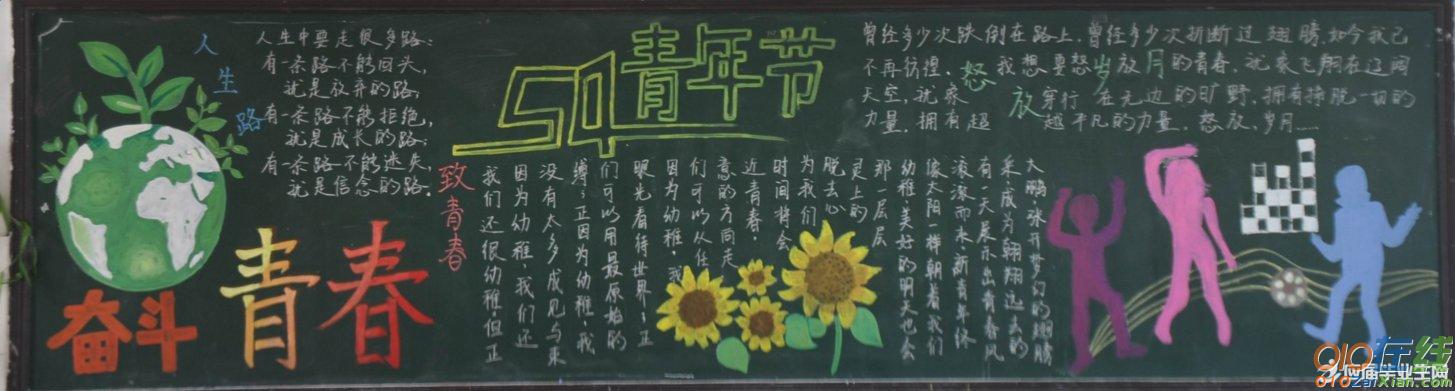 人生路
人生中要走很多路：
有一条路不能回头，
就是放弃的路；
有一条路不能拒绝，
就是成长的路；
有一条路不能迷失，
就是信念的路。
奋斗
青春
54青年节
致青春
我们还很幼稚，但正
因为幼稚，我们还
没有太多成见与束
缚；正因为幼稚，我
们可以用最原始的
眼光看待世界；正
因为幼稚，我
们可以从任
意的方向走
近青春，
时间将会
为我们
脱去心
灵上的
那一层层
幼稚，美好的明天也会
像太阳一样朝着我们
滚滚而来，新青年终
有一天展示出青春风
采，成为翱翔远去的
大鹏，张开梦幻的翅膀
怒放岁月
曾经多少次跌倒在路上，曾经多少次折断过翅膀，如今我已
不再彷徨，我想要怒放的青春，就象飞翔在辽阔
天空，就象穿行在无边的旷野，拥有挣脱一切的
力量，拥有超越平凡的力量，怒放，岁月……
应届毕业生网